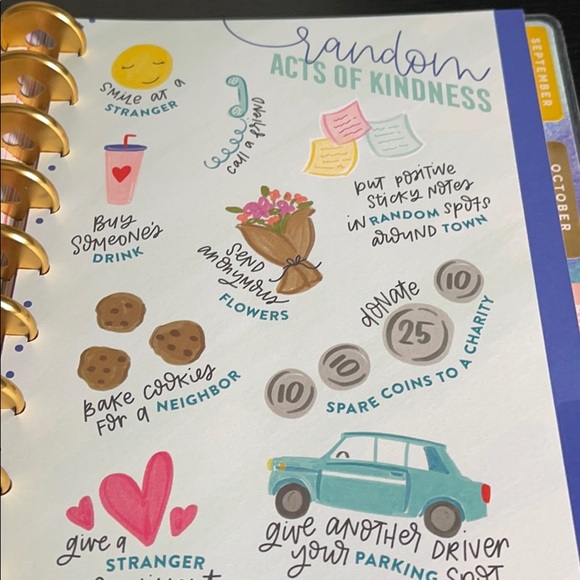 random
ACTS OF KINDNESS
SMILE AT A
STRANGER
call a friend
PUT POSITIVE
STICKY NOTES
IN RANDOM SPOTS
AROUND TOWN
BUY
SOMEONE'S
DRINK
SEND
anonymous
FLOWERS
DONATE
10
25
10
10
SPARE COINS TO A CHARITY
BAKE COOKIES
FOR A NEIGHBOR
give a
STRANGER
give ANOTHER DRIVER
your PARKING SPOT
SEPTEMBER
OCTOBER